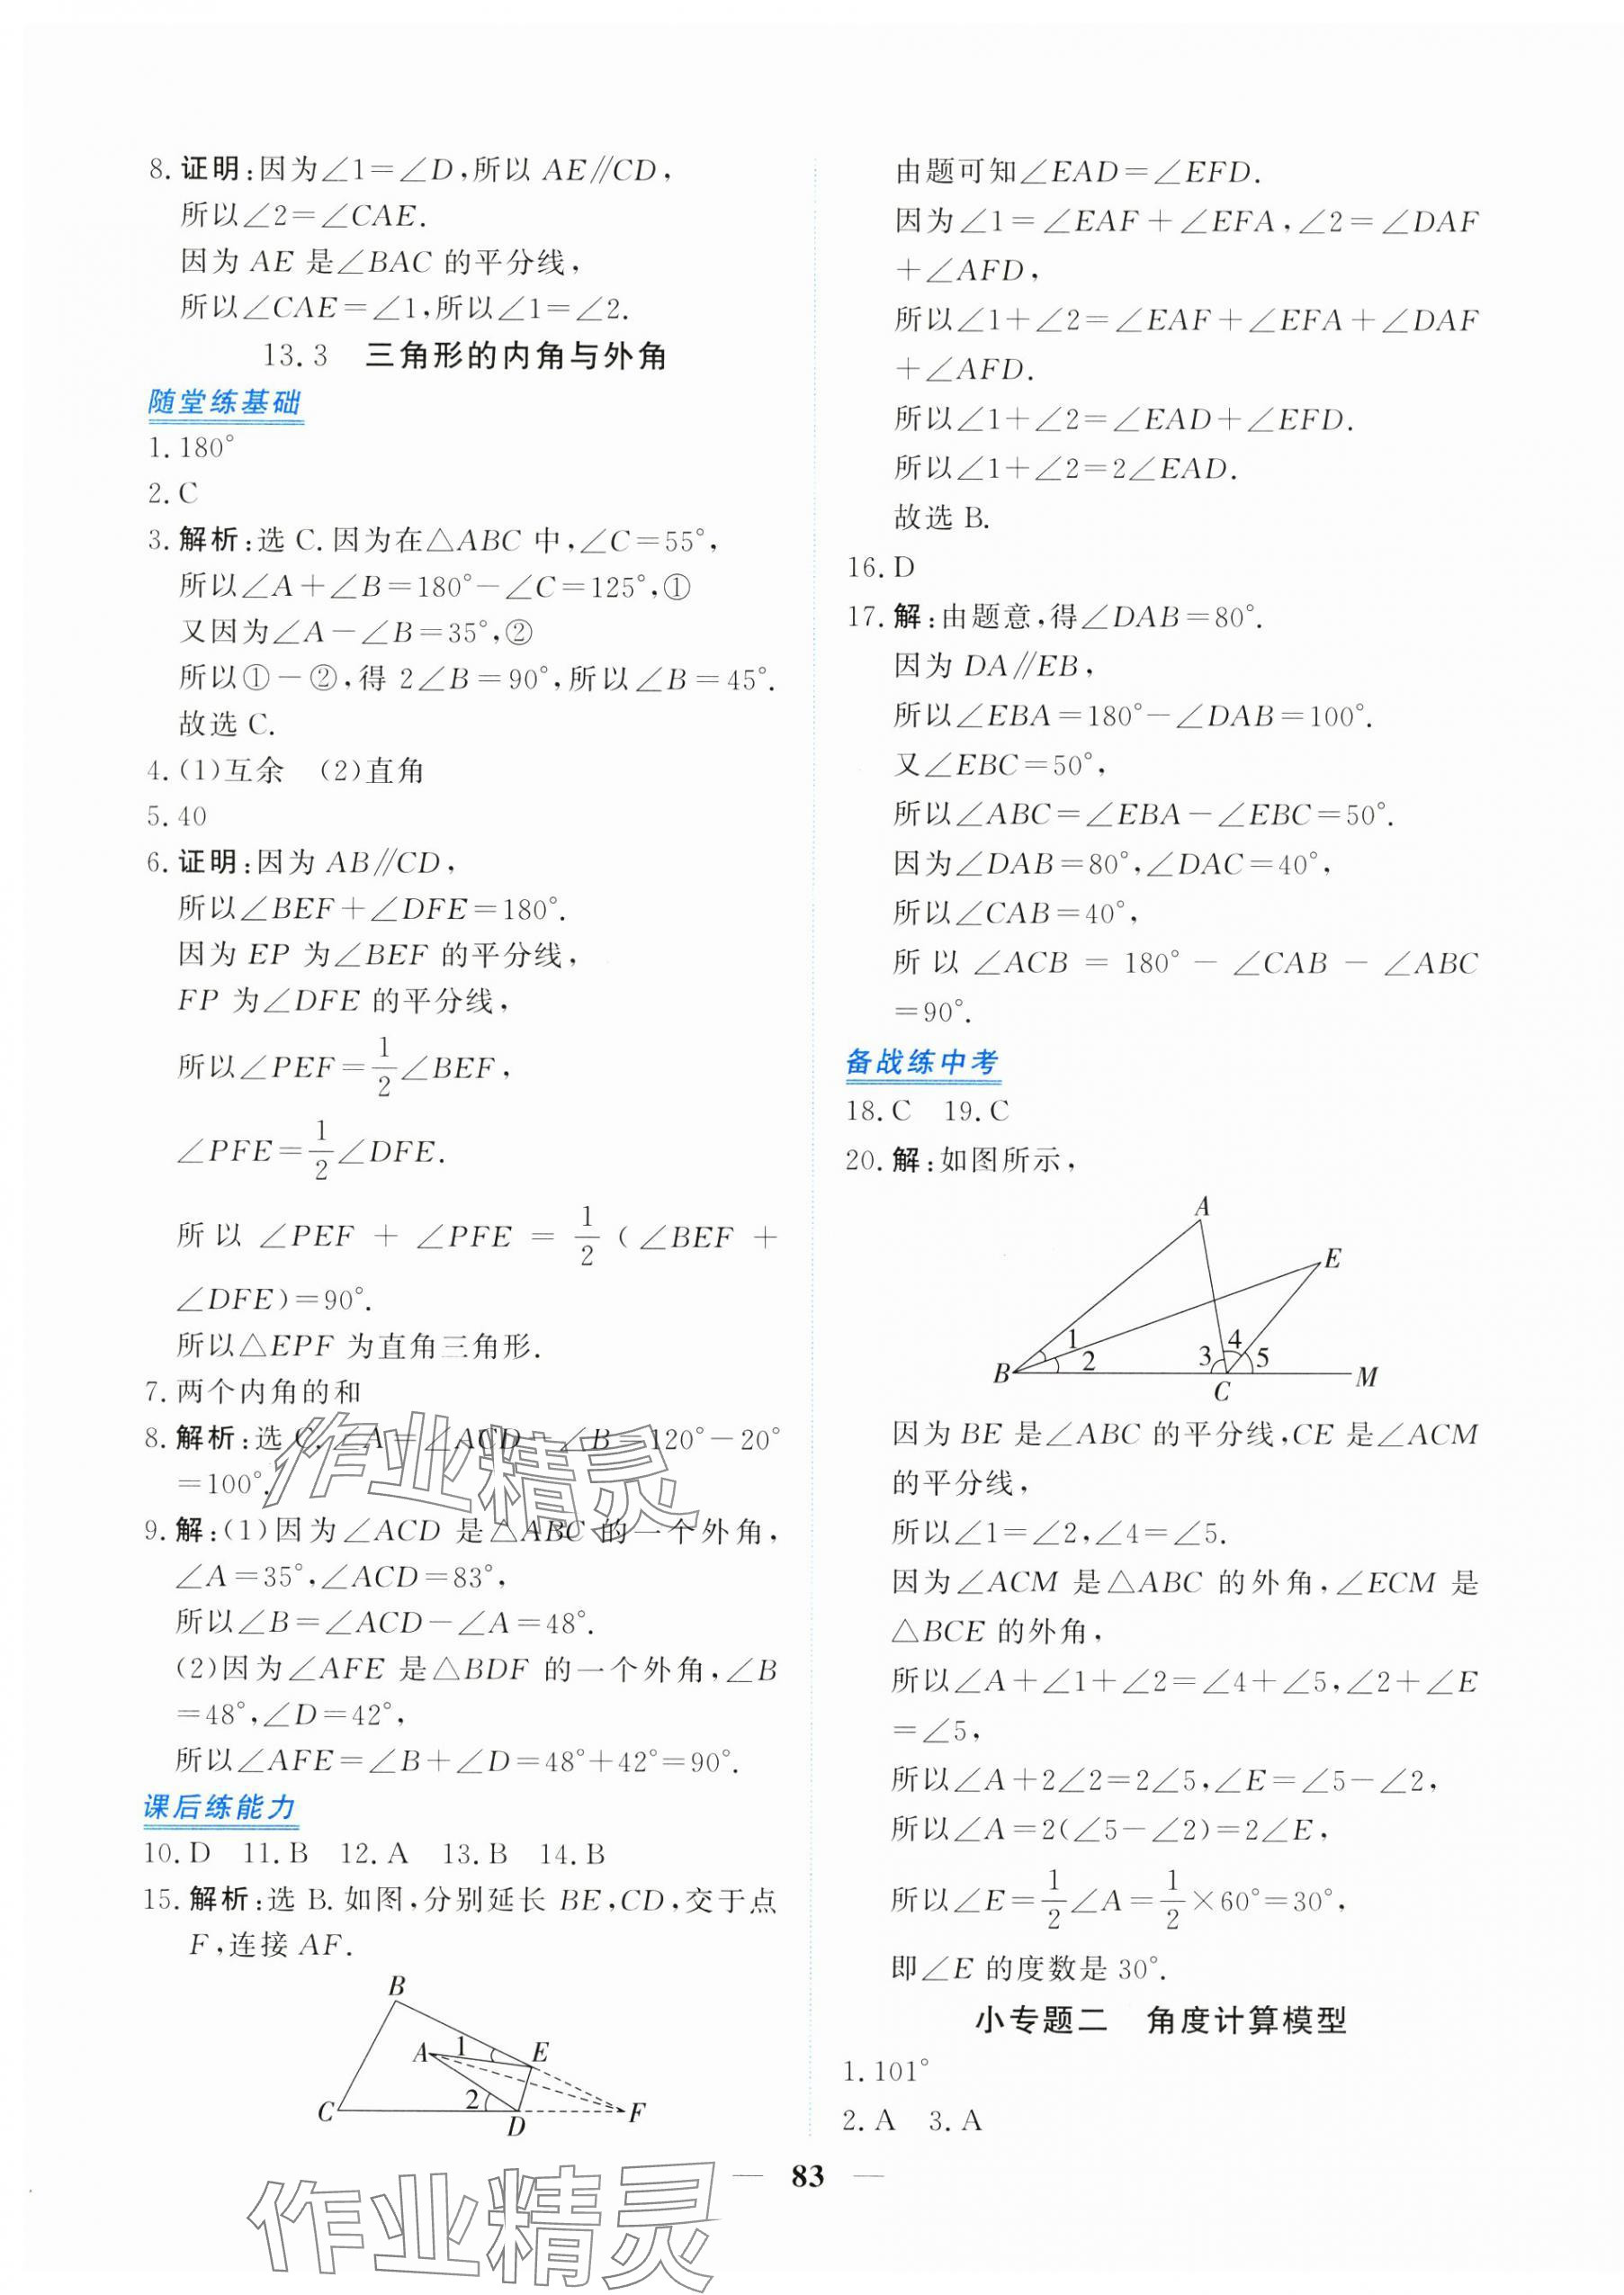 8. 证明:因为∠1=∠D,所以 AE∥CD,
所以∠2=∠CAE.
因为 AE 是∠BAC 的平分线,
所以∠CAE=∠1,所以∠1=∠2.
13.3 三角形的内角与外角
随堂练基础
1. 180°
2. C
3. 解析:选 C. 因为在△ABC 中,∠C=55°,
所以∠A+∠B=180°-∠C=125°,①
又因为∠A-∠B=35°,②
所以①-②,得 2∠B=90°,所以∠B=45°.
故选 C.
4. (1)互余 (2)直角
5. 40
6. 证明:因为 AB∥CD,
所以∠BEF+∠DFE=180°.
因为 EP 为∠BEF 的平分线,
FP 为∠DFE 的平分线,
所以∠PEF=1/2∠BEF,
∠PFE=1/2∠DFE.
所以 ∠PEF + ∠PFE = 1/2 (∠BEF +
∠DFE)=90°.
所以△EPF 为直角三角形.
7. 两个内角的和
8. 解析:选 C. ∠A=∠ACD-∠B=120°-20°
=100°.
9. 解:(1)因为∠ACD 是△ABC 的一个外角,
∠A=35°,∠ACD=83°,
所以∠B=∠ACD-∠A=48°.
(2)因为∠AFE 是△BDF 的一个外角,∠B
=48°,∠D=42°,
所以∠AFE=∠B+∠D=48°+42°=90°.
课后练能力
10. D 11. B 12. A 13. B 14. B
15. 解析:选 B. 如图,分别延长 BE,CD,交于点
F,连接 AF.
B
A 1 E
2
C D F
由题可知∠EAD=∠EFD.
因为∠1=∠EAF+∠EFA,∠2=∠DAF
+∠AFD,
所以∠1+∠2=∠EAF+∠EFA+∠DAF
+∠AFD.
所以∠1+∠2=∠EAD+∠EFD.
所以∠1+∠2=2∠EAD.
故选 B.
16. D
17. 解:由题意,得∠DAB=80°.
因为 DA∥EB,
所以∠EBA=180°-∠DAB=100°.
又∠EBC=50°,
所以∠ABC=∠EBA-∠EBC=50°.
因为∠DAB=80°,∠DAC=40°,
所以∠CAB=40°,
所以 ∠ACB = 180° - ∠CAB - ∠ABC
=90°.
备战练中考
18. C 19. C
20. 解:如图所示,
A
E
1 4
2 3 5
B C M
因为 BE 是∠ABC 的平分线,CE 是∠ACM
的平分线,
所以∠1=∠2,∠4=∠5.
因为∠ACM 是△ABC 的外角,∠ECM 是
△BCE 的外角,
所以∠A+∠1+∠2=∠4+∠5,∠2+∠E
=∠5,
所以∠A+2∠2=2∠5,∠E=∠5-∠2,
所以∠A=2(∠5-∠2)=2∠E,
所以∠E=1/2∠A=1/2×60°=30°,
即∠E 的度数是 30°.
小专题二 角度计算模型
1. 101°
2. A 3. A
— 83 —
作业精灵
作业精灵